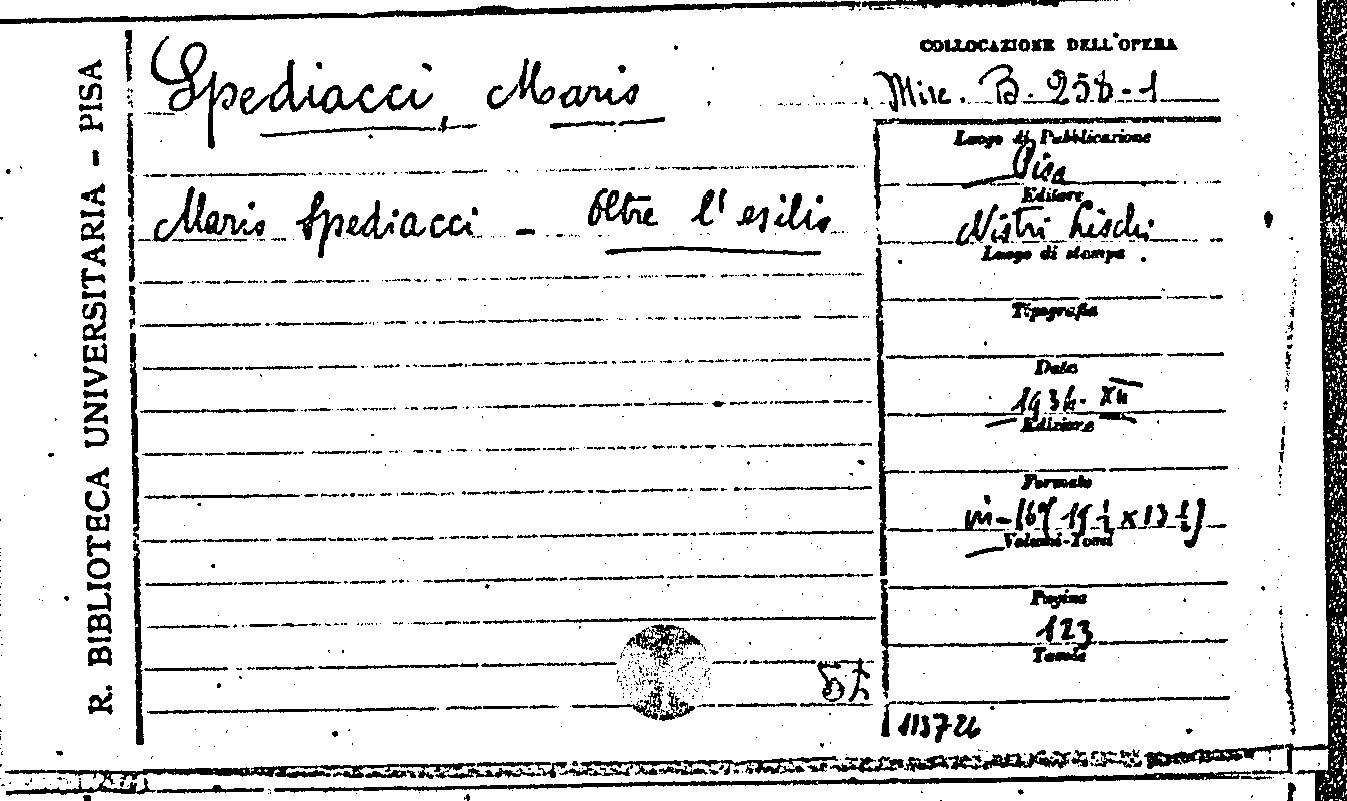 R. BIBLIOTECA UNIVERSITARIA - PISA
Spediacci, Mario
Mario Spediacci - Oltre l'esilio
COLLOCAZIONE DELL'OPERA
Misc. B. 258-1
Luogo di Pubblicazione
Pisa
Editore
Nistri Lischi
Luogo di stampa
Tipografia
Data
1934-XII
Edizione
Formato
in-16º (19 ½ x 13 ½)
Volumi-Tomi
Pagine
123
Tavole
113726